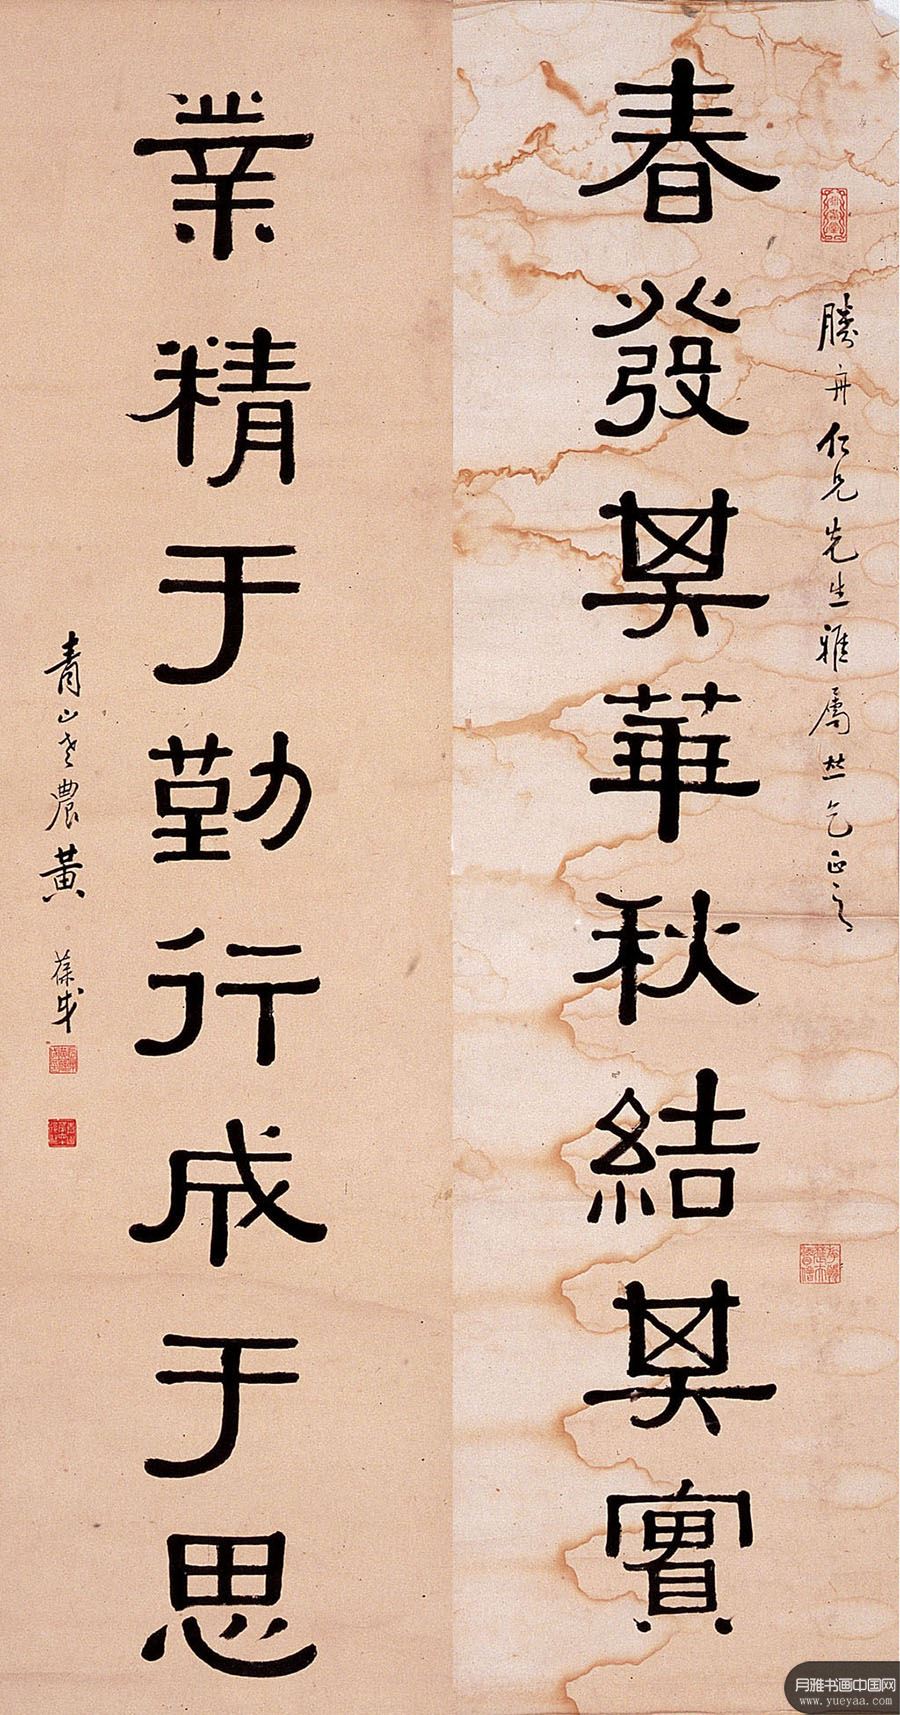 勝舟仁兄先生雅屬即乞正之
春發其華秋結其實
業精于勤行成于思
青山老農黃葆戉
月雅书画中国网
www.yueyaa.com